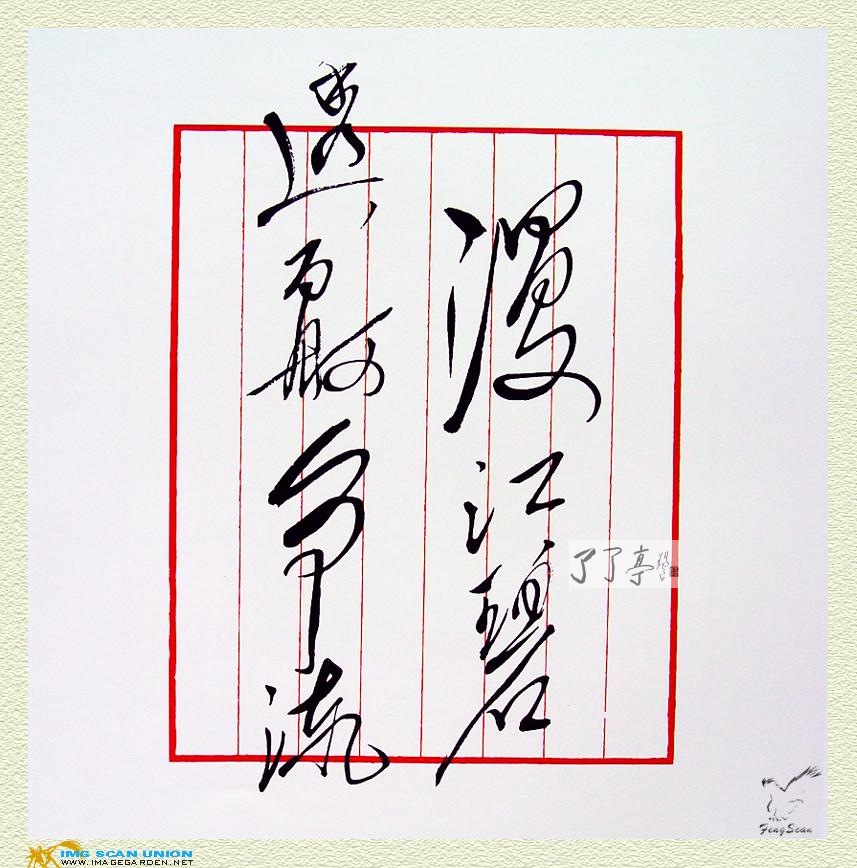 漫江碧
透百舸争流
了了亭
FengScan
IMG SCAN UNION
WWW.IMAGEGARDEN.NET